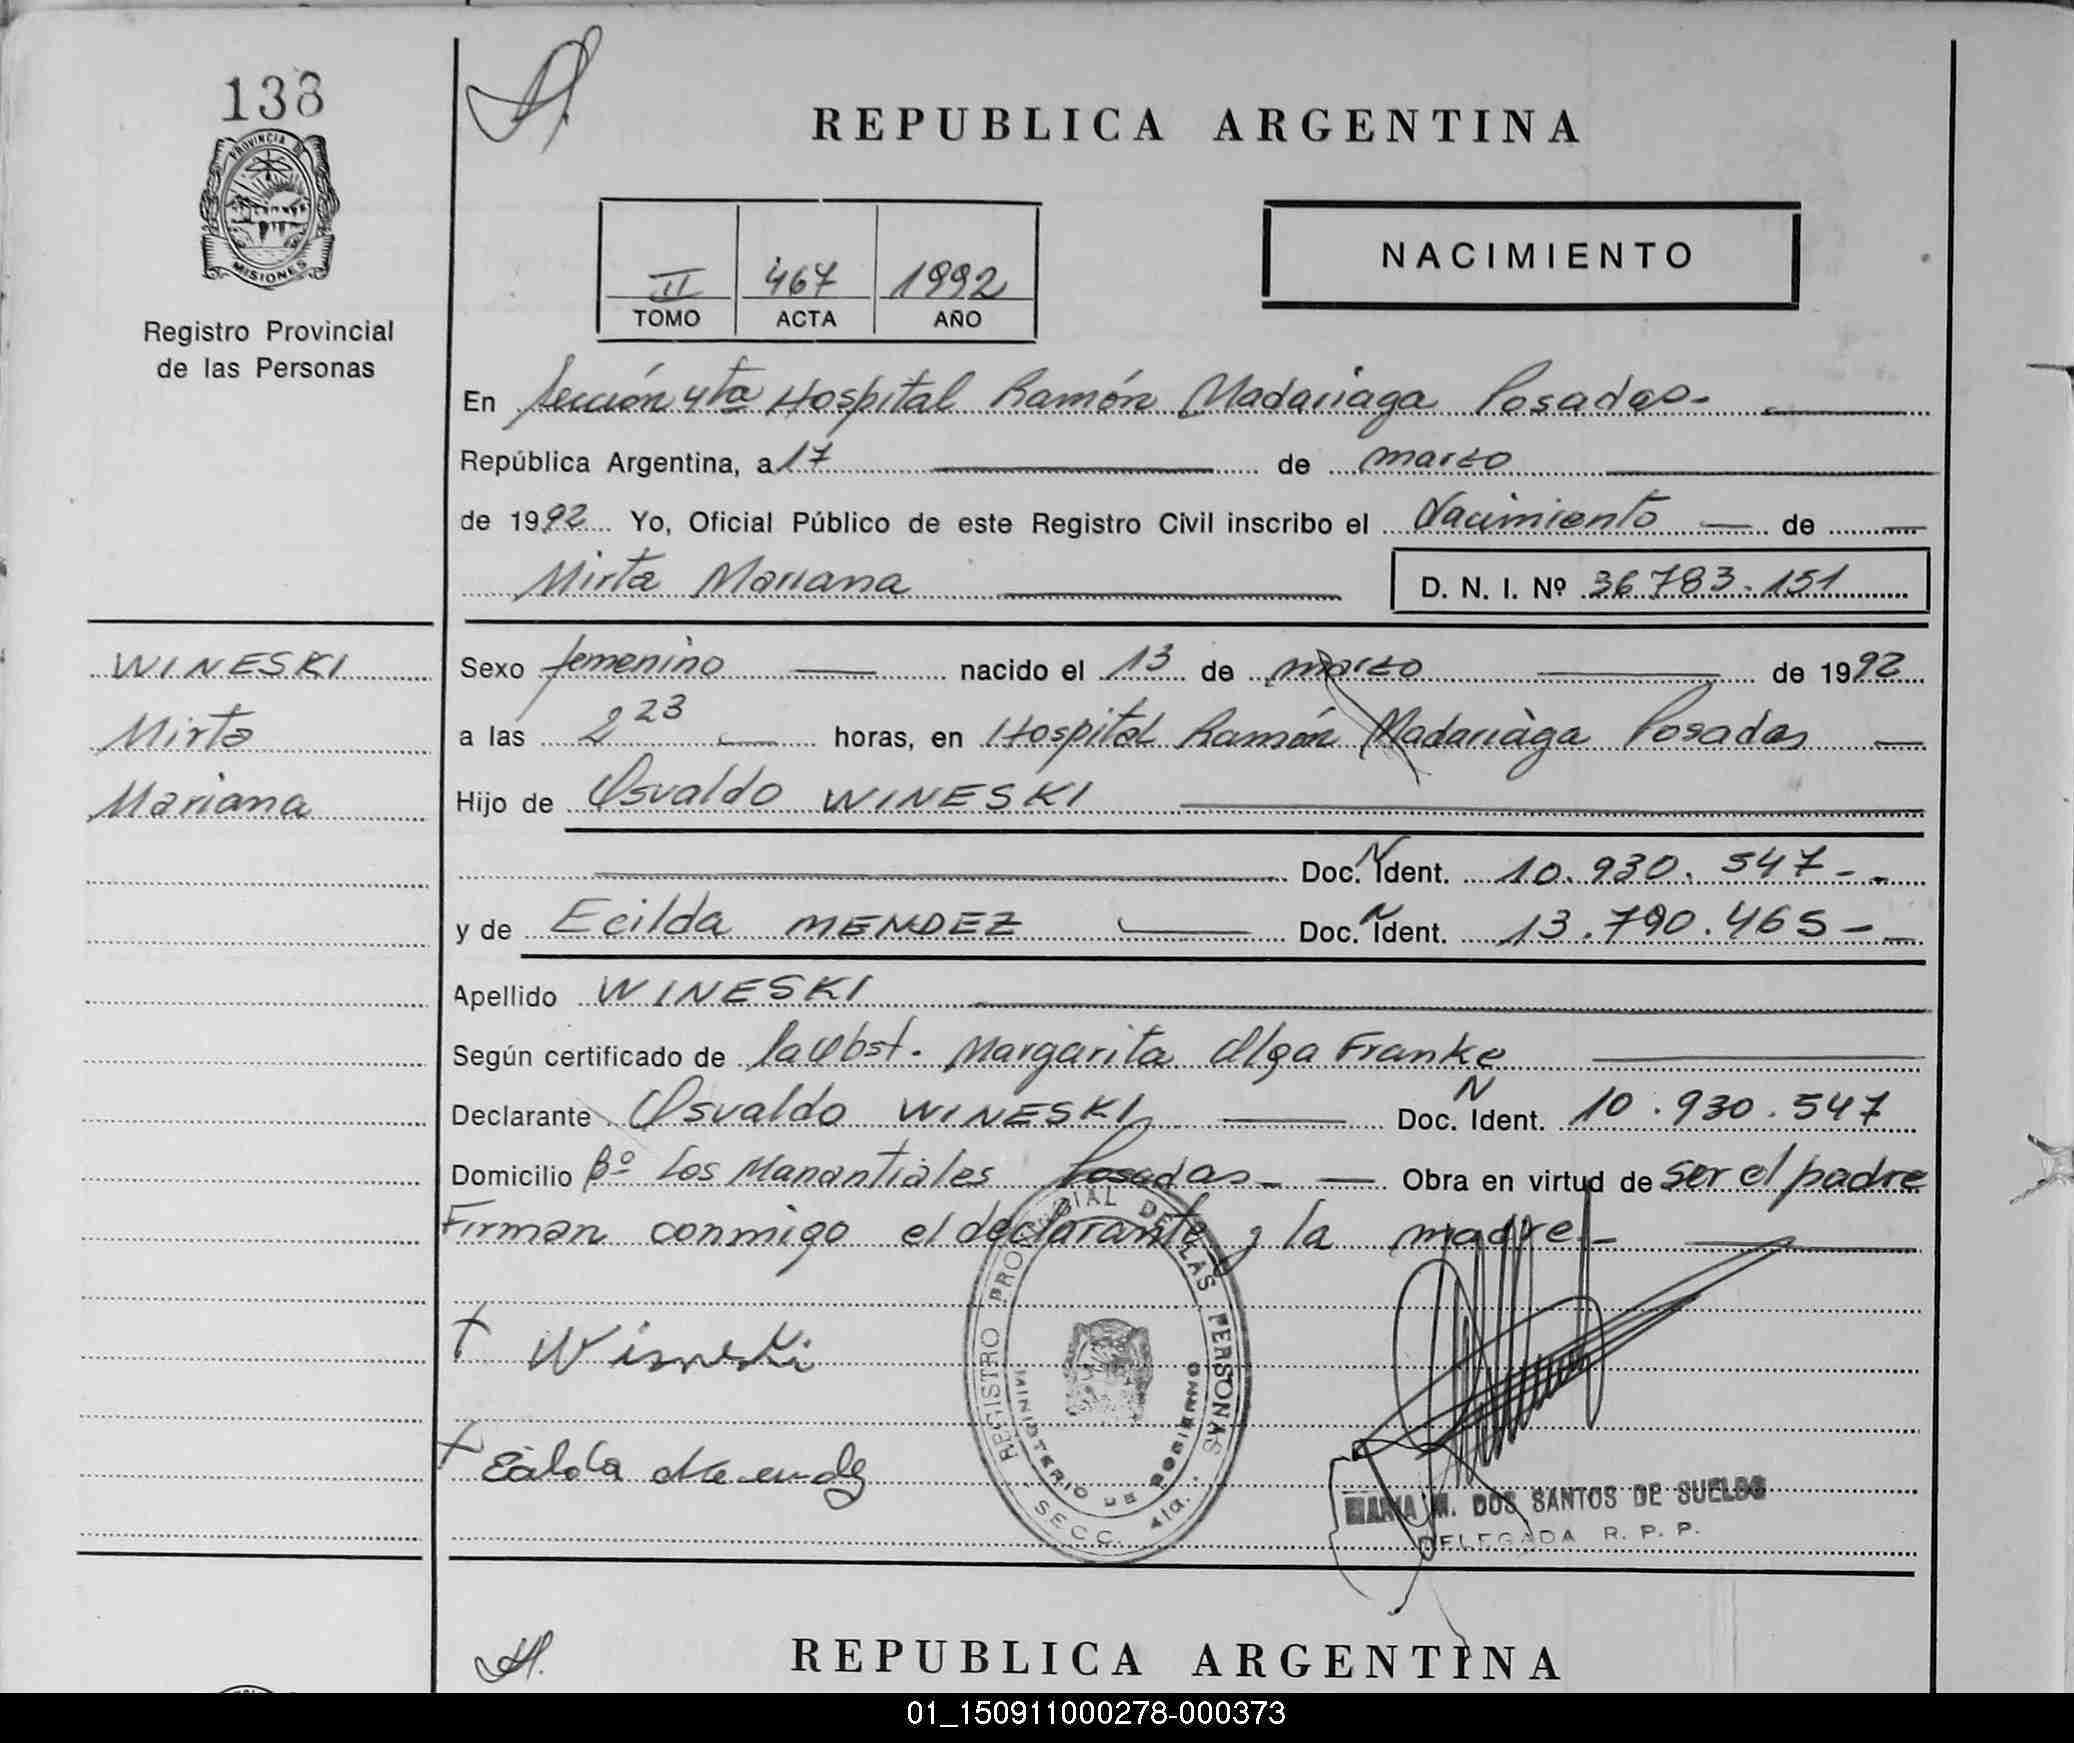 138
PROVINCIA DE
MISIONES
Registro Provincial
de las Personas
REPUBLICA ARGENTINA
II 467 1992
TOMO ACTA AÑO
NACIMIENTO
En Sección 4ta Hospital Ramón Madariaga Posadas.
República Argentina, a 17 de marzo
de 1992 Yo, Oficial Público de este Registro Civil inscribo el Nacimiento de
Mirta Mariana D. N. I. Nº 36.783.151
WINESKI
Mirta
Mariana
Sexo femenino nacido el 13 de marzo de 1992
a las 2 23 horas, en Hospital Ramón Madariàga Posadas
Hijo de Osvaldo WINESKI
Doc. N Ident. 10.930.547
y de Ecilda MENDEZ Doc. N Ident. 13.790.465
Apellido WINESKI
Según certificado de la Obst. Margarita Olga Franke
Declarante Osvaldo WINESKI Doc. N Ident. 10.930.547
Domicilio Bº Los Manantiales Posadas Obra en virtud de ser el padre
Firman conmigo el declarante y la madre
REGISTRO PROVINCIAL DE LAS PERSONAS
MINISTERIO DE GOBIERNO
SECC. 4ta.
MARIA M. DOS SANTOS DE SUELDO
DELEGADA R. P. P.
REPUBLICA ARGENTINA
01_150911000278-000373